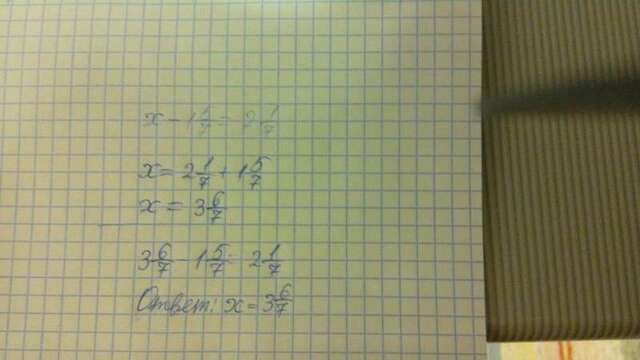 x - 1 5/7 = 2 1/7
x = 2 1/7 + 1 5/7
x = 3 6/7
3 6/7 - 1 5/7 = 2 1/7
Ответ: x = 3 6/7